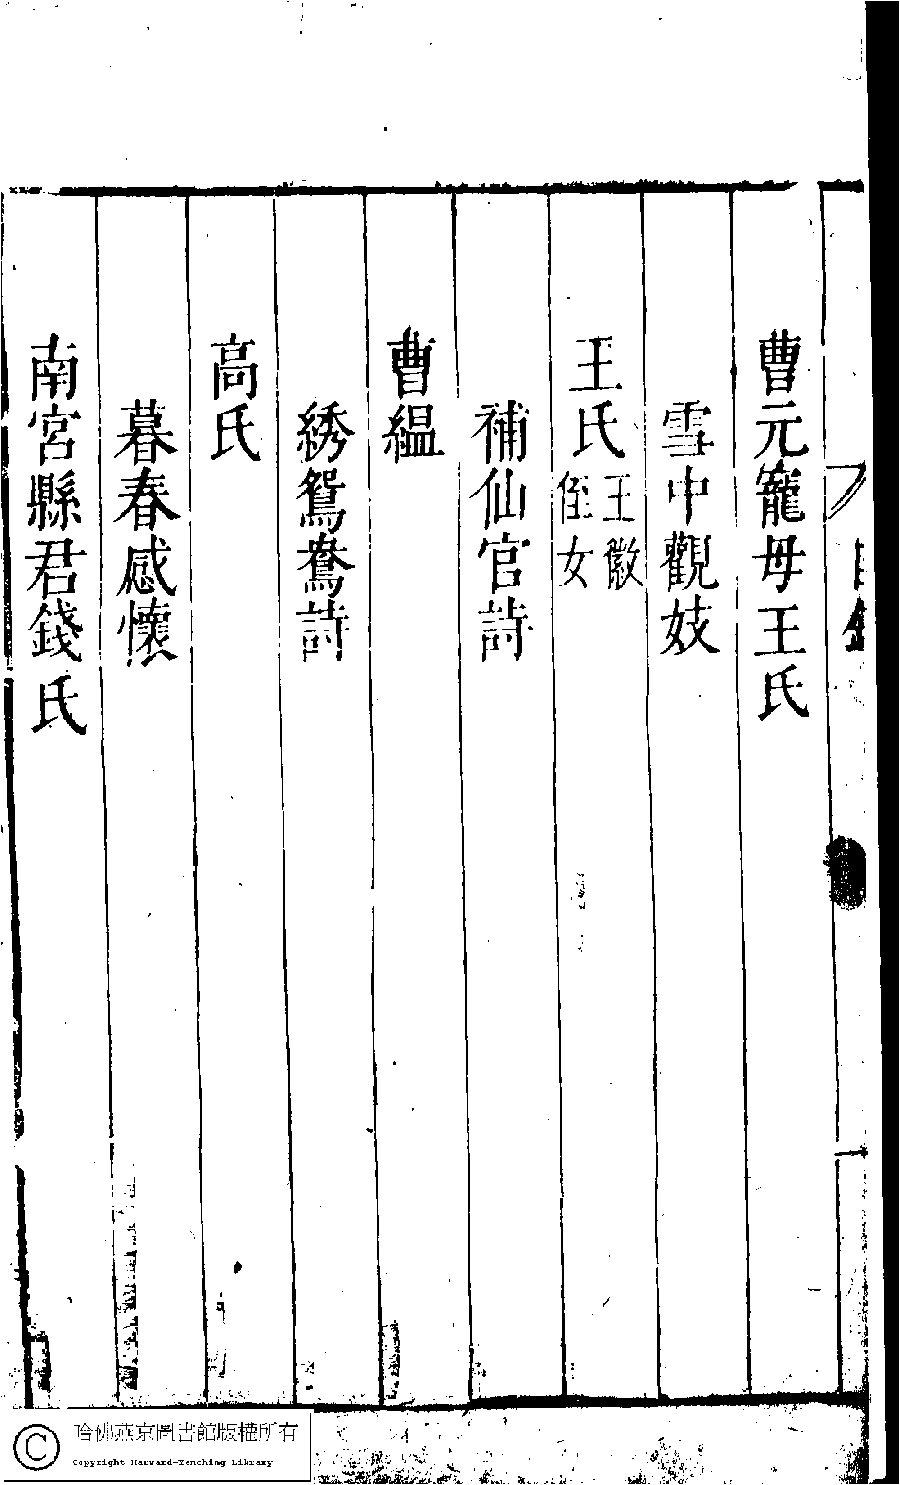 曹元寵母王氏
雪中觀妓
王氏王徽侄女
補仙官詩
曹緼
綉鴛鴦詩
高氏
暮春感懷
南宮縣君錢氏
哈佛燕京圖書館版權所有
Copyright Harvard-Yenching Library